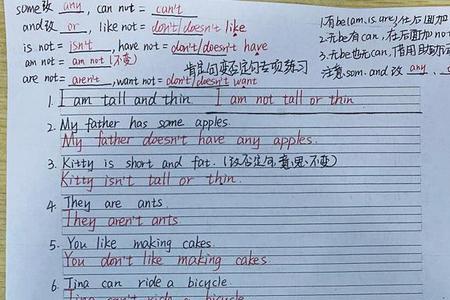 some改 any, can not = can't
and改 or, like not= don't/doesn't like
is not = isn't, have not = don't/doesn't have
am not = am not (不变)
are not= aren't, want not= don't/doesn't want
肯定句变否定句专项练习
1.有be(am.is.are),在后面加
2.无be有can,在后面加no
3.无be也无can,借用助动
注意.som.and 改 any
1. I am tall and thin I am not tall or thin
2. My father has some apples.
My father doesn't have any apples.
3. Kitty is short and fat. (改否定句,意思不变)
Kitty isn't tall or thin.
4. They are ants
They aren't ants
5. You like making cakes.
You don't like making cakes.
6. Tina can ride a bicycle.
Tina can't ride a bicycle